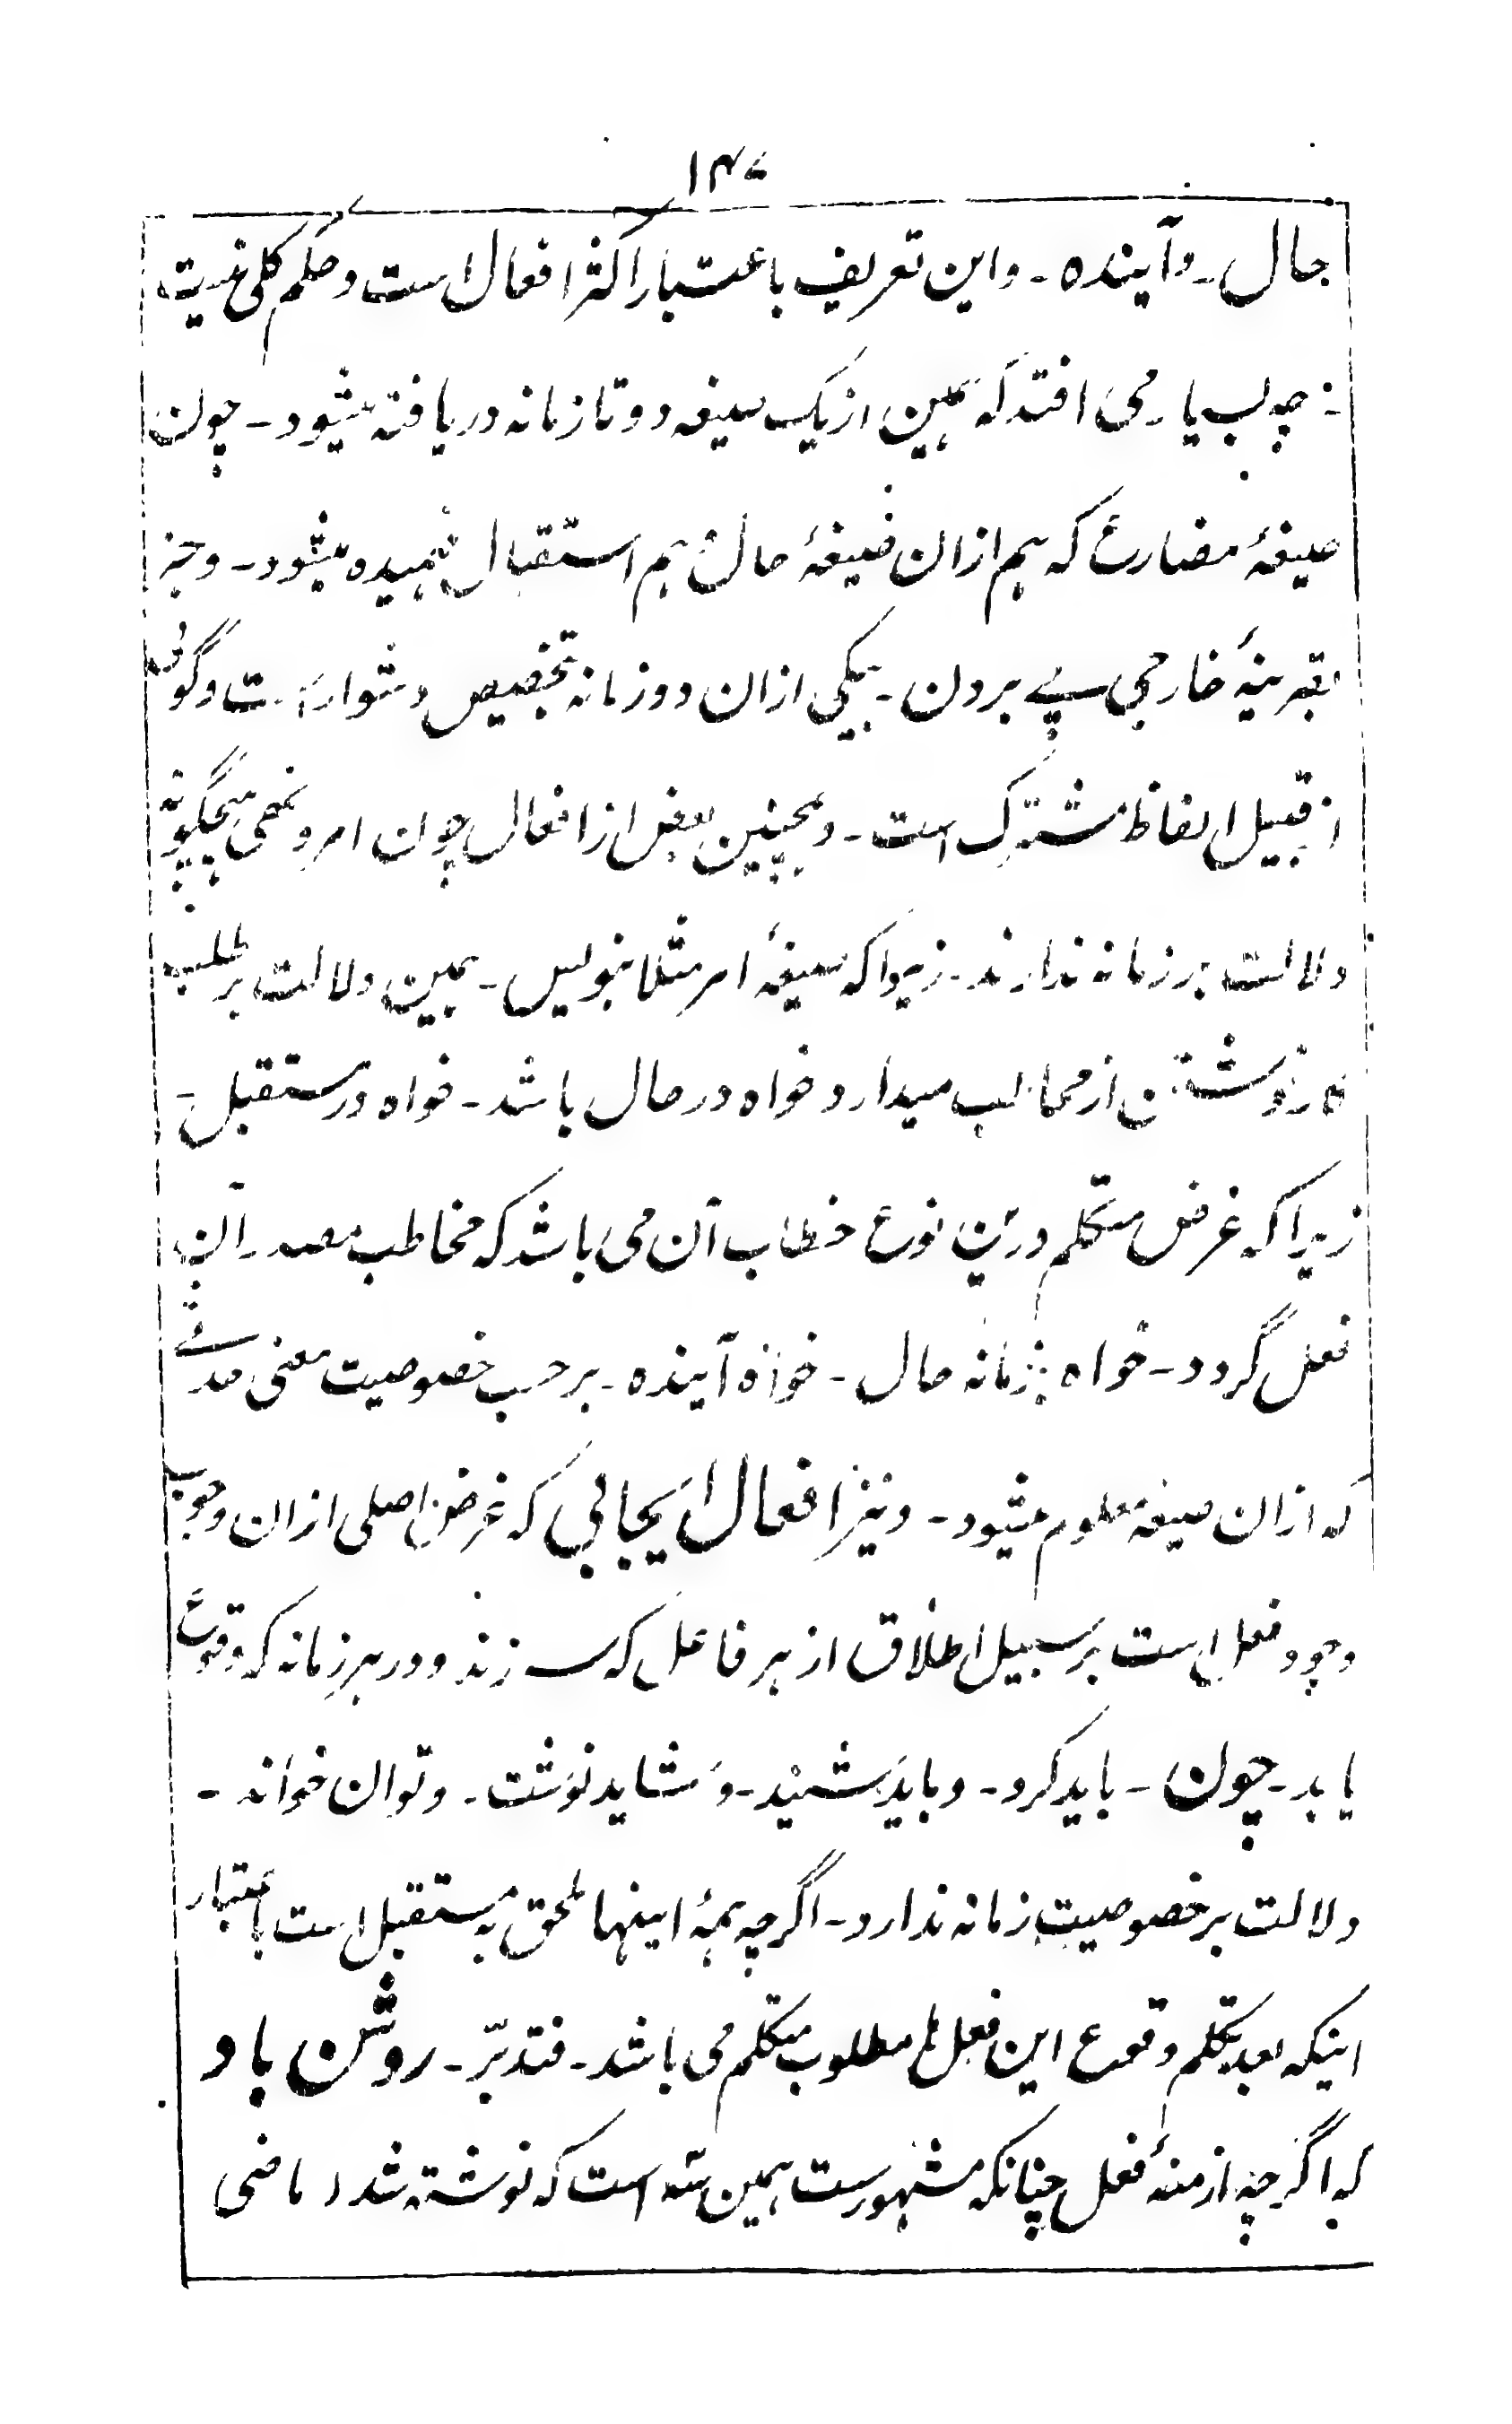 ۱۴۷
حال۔ وآینده۔ واین تعریف باعتبار اکثر افعال است و حکم کلی نیست
چه بسیار می افتد که همین از یک صیغه دو تا زمانه دریافته میشود۔ چون
صیغهٔ مضارع که هم ازان صیغهٔ حال و هم استقبال فهمیده میشود۔ وجز
بقرینهٔ خارجی پے بردن۔ بیکی ازان دو زمانه تخصیص دشوار است و گوئی
از قبیل الفاظ مشترک است۔ و همچنین بعض از افعال چون امر و نهی هیچگونه
دلالت بر زمانه ندارند۔ زیرا که صیغهٔ امر مثلا بنویس۔ همین دلالت بر طلب
کار نوشتن از مخاطب میدارد خواه در حال باشد۔ خواه در مستقبل۔
زیرا که غرض متکلم درین نوع خطاب آن می باشد که مخاطب مصدر آن
فعل گردد۔ خواه بزمانه حال۔ خواه آینده۔ بر حسب خصوصیت معنی حدثے
که ازان صیغه معلوم میشود۔ و نیز افعال ایجابی که غرض اصلی ازان وجوب
وجود فعل است بر سبیل اطلاق از هر فاعل که سر زند و در هر زمانه که وقوع
یابد۔ چون۔ باید کرد۔ و باید شنید۔ و شاید نوشت۔ و توان خواند۔
دلالت بر خصوصیت زمانه ندارد۔ اگرچه همهٔ اینها ملحق به مستقبل است باعتبار
اینکه بعد تکلم وقوع این فعل ها مطلوب متکلم می باشد۔ فتدبّر۔ روشن باد
که اگرچه ازمنهٔ فعل چنانکه مشهورست همین سه است که نوشته شد، ماضی